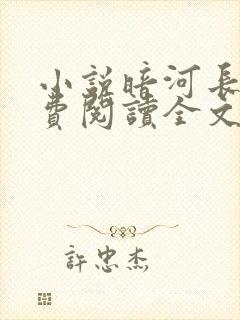 小説暗河長
費閱讀全文
許忠杰